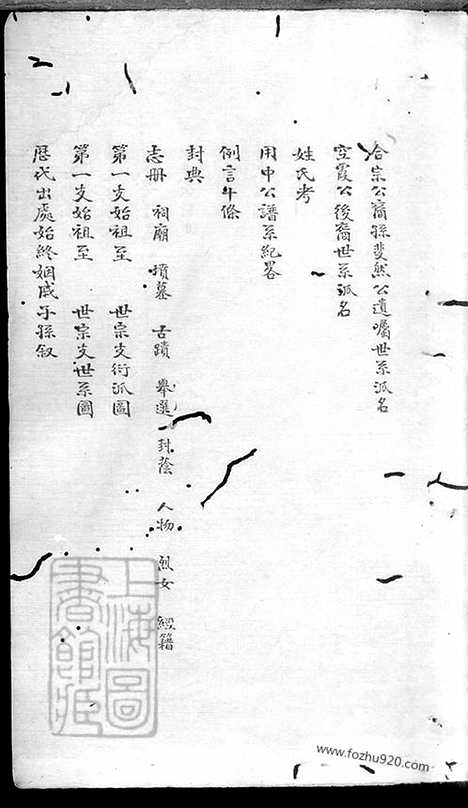 合宗公裔孫斐然公遺囑世系派名
空霞公後裔世系派名
姓氏考
用中公譜系紀畧
例言牛條
封典
志册 祠廟 墳墓 古蹟 舉選 封蔭 人物 烈女 經籍
第一支始祖至 世宗支衍派圖
第一支始祖至 世宗支世系圖
歷代出處始終姻戚子孫叙
上海圖書館藏
www.fozhu920.com